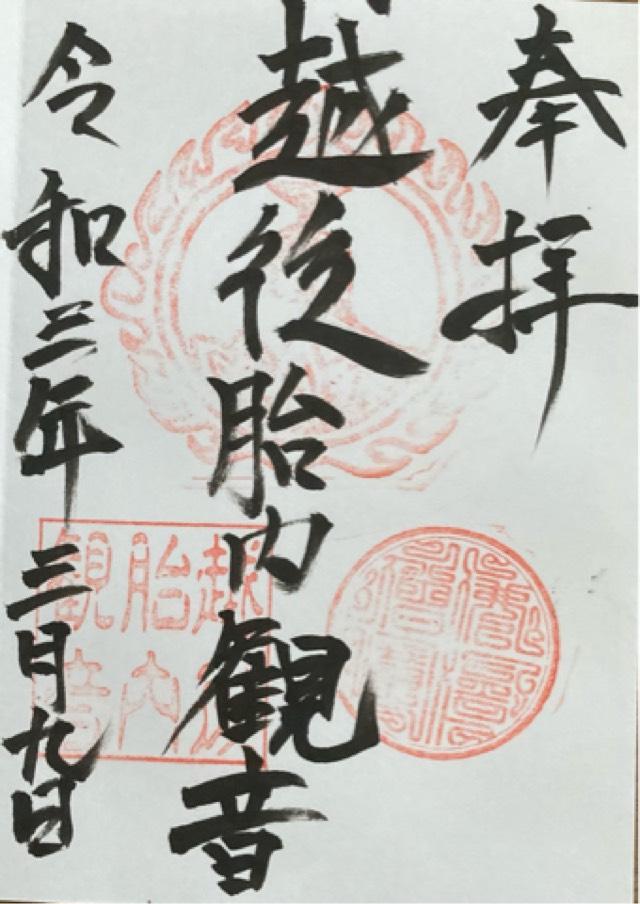 奉拝
越後胎内観音
令和三年三月九日
越後
胎内
観音